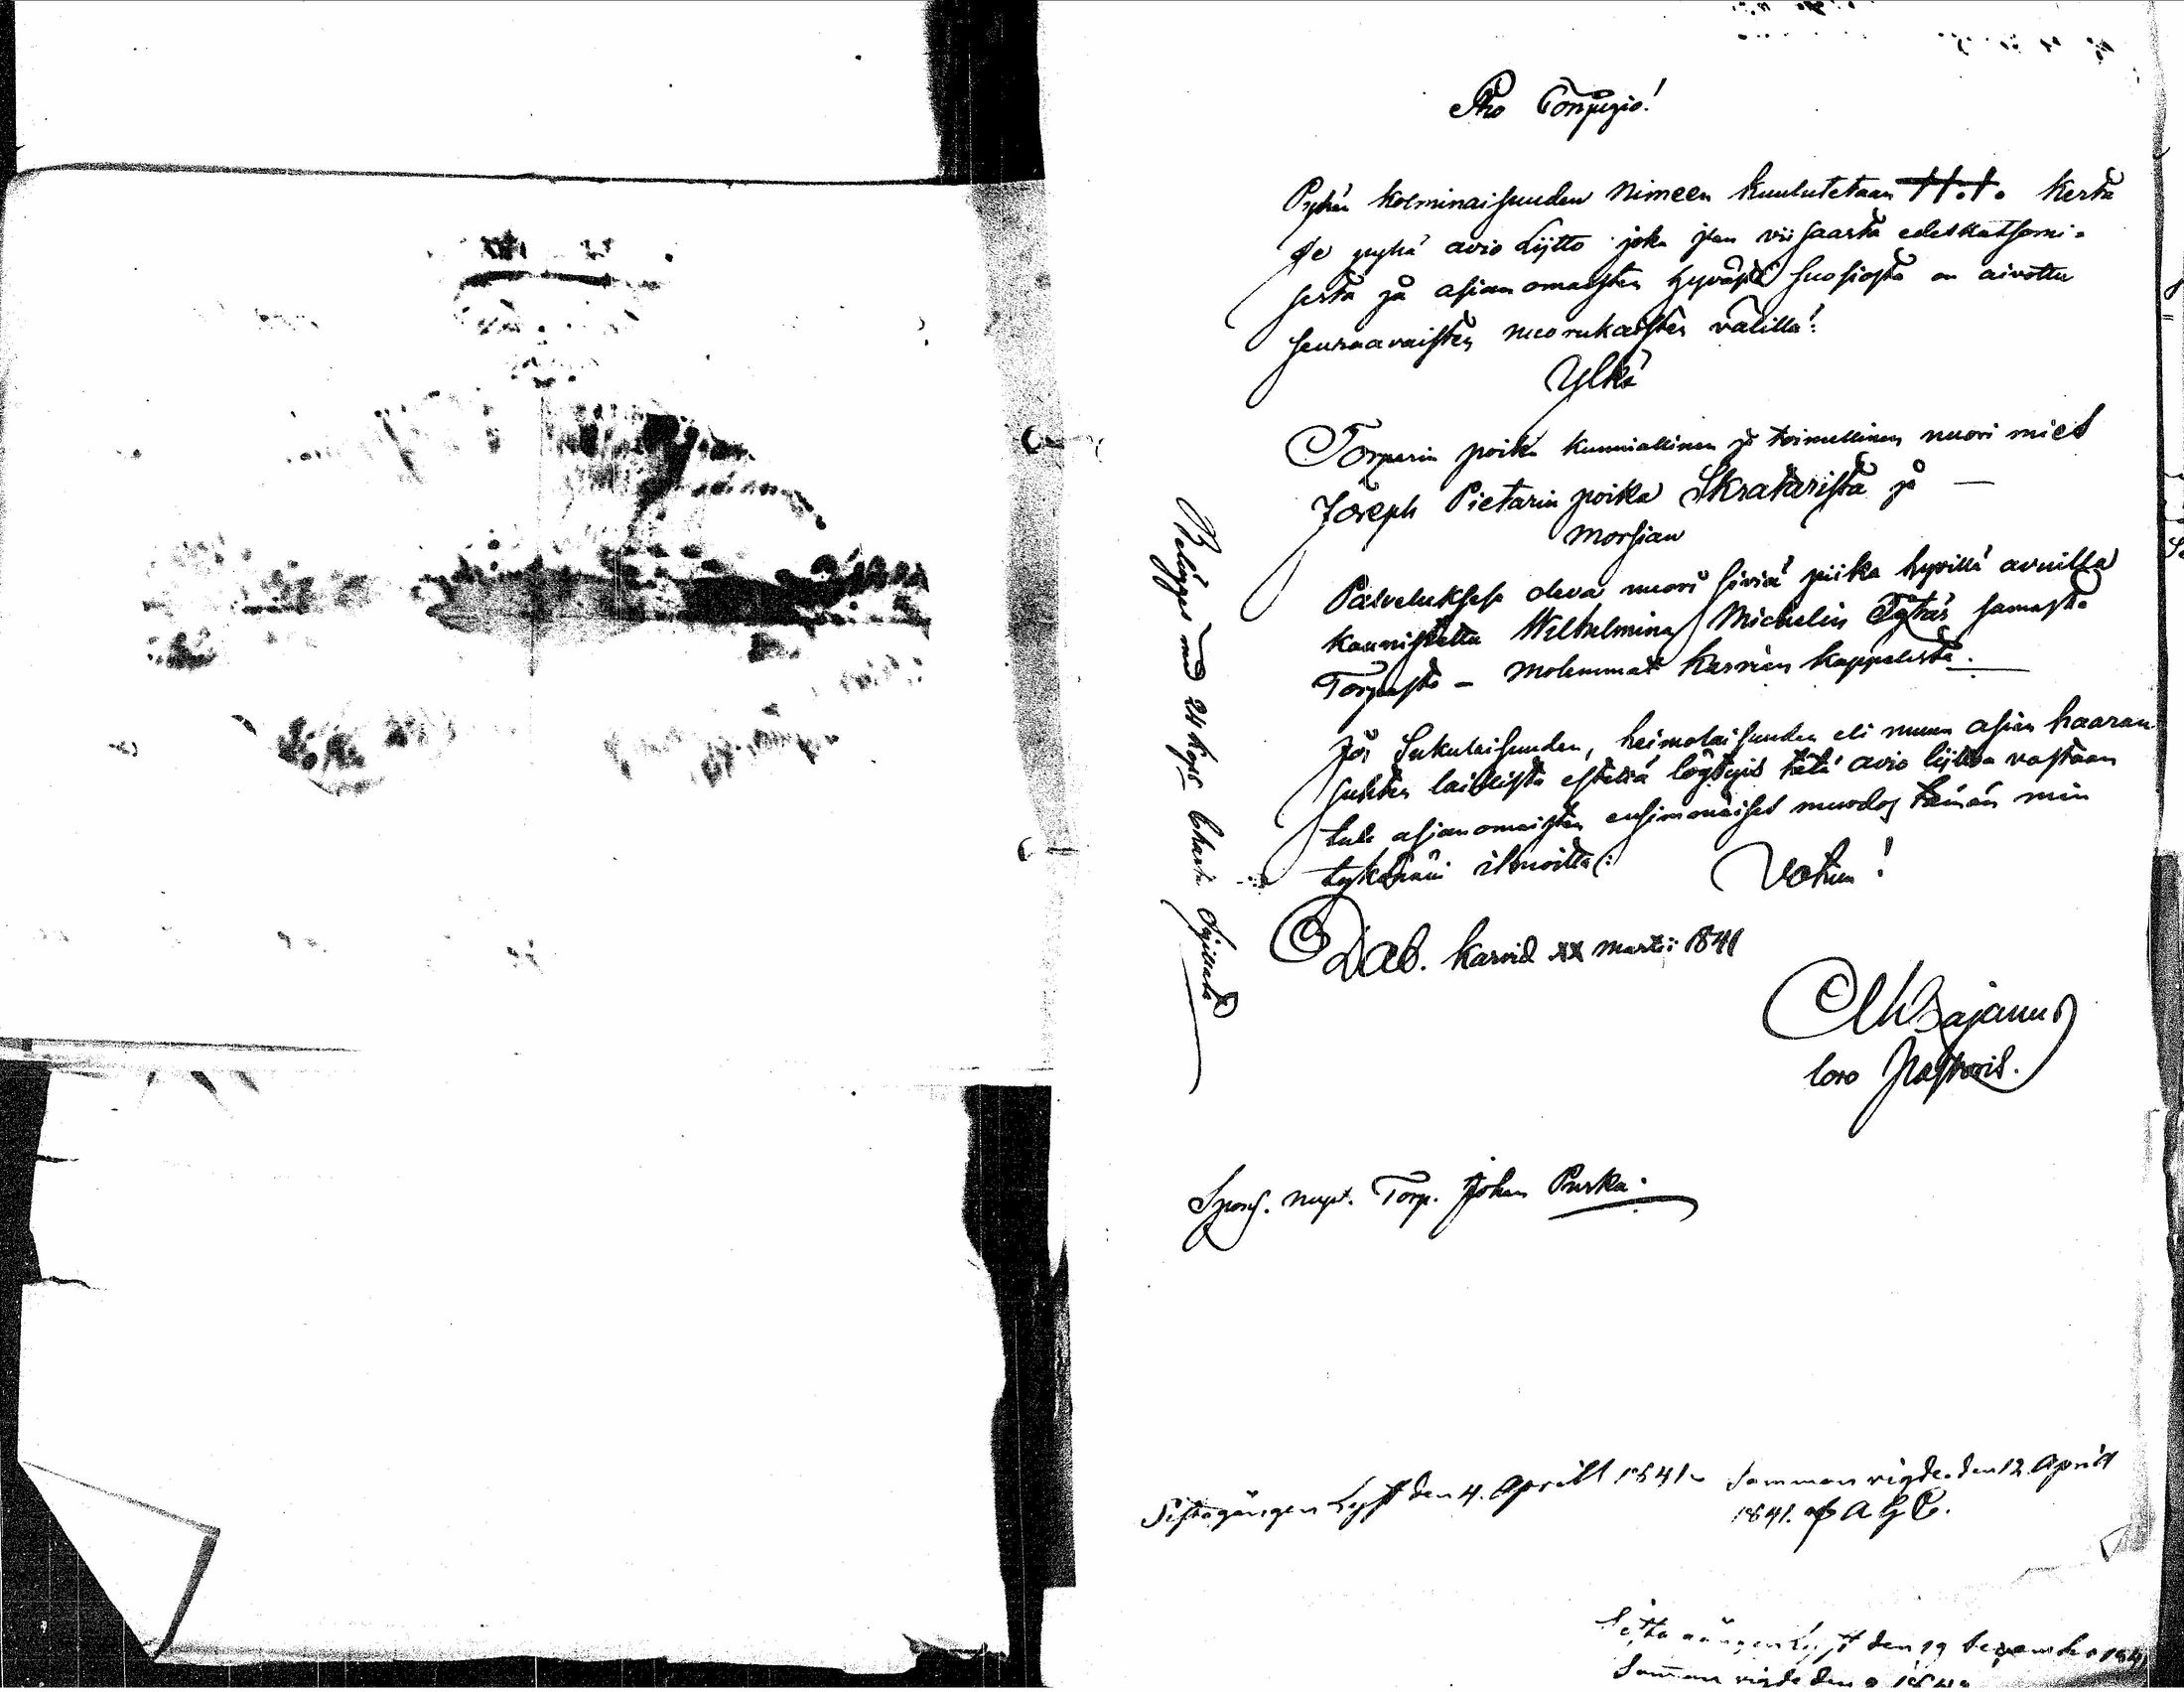 Pro Conjugio!
Pyhän kolminaisuuden Nimeen kuulutetaan kerta
se pyhä avio Lijtto joka jlan viisaasta edeskatsomi-
sesta ja asian omaisten hyvästä suosiosta on aivottu
seuraavaisten nuorukaisten välillä:
Ylkä
Torparin poika kunniallinen ja toimellinen nuori mies
Joseph Pietarin poika Skratarista ja —
Morsian
Palveluksesa oleva nuori siviä piika hyvillä avuilla
kaunistettu Wilhelmina Michelin Tytär samasta
Torpasta – Molemmat karvian kappelista.
Jos Sukulaisuuden, heimolaisuuden eli muun asian haaran
suhten laillista estettä löytyis tätä avio lijttoa vastaan
tule asianomaisten ensimmäises muodos tämän
tykönäni ilmoitta: Votum!
Dab. Karvia XX Martii 1841
loco Pastoris.
Belägges med 24 kop. Charta Sigillata
Spons. nupt. Torp. Johan Purka.
Sista gången Lyst den 4. Aprill 1841. Samman vigde. den 12. Aprill
1841. af A G C.
Sista gången Lyst den 19 December 1841
Samman vigde den